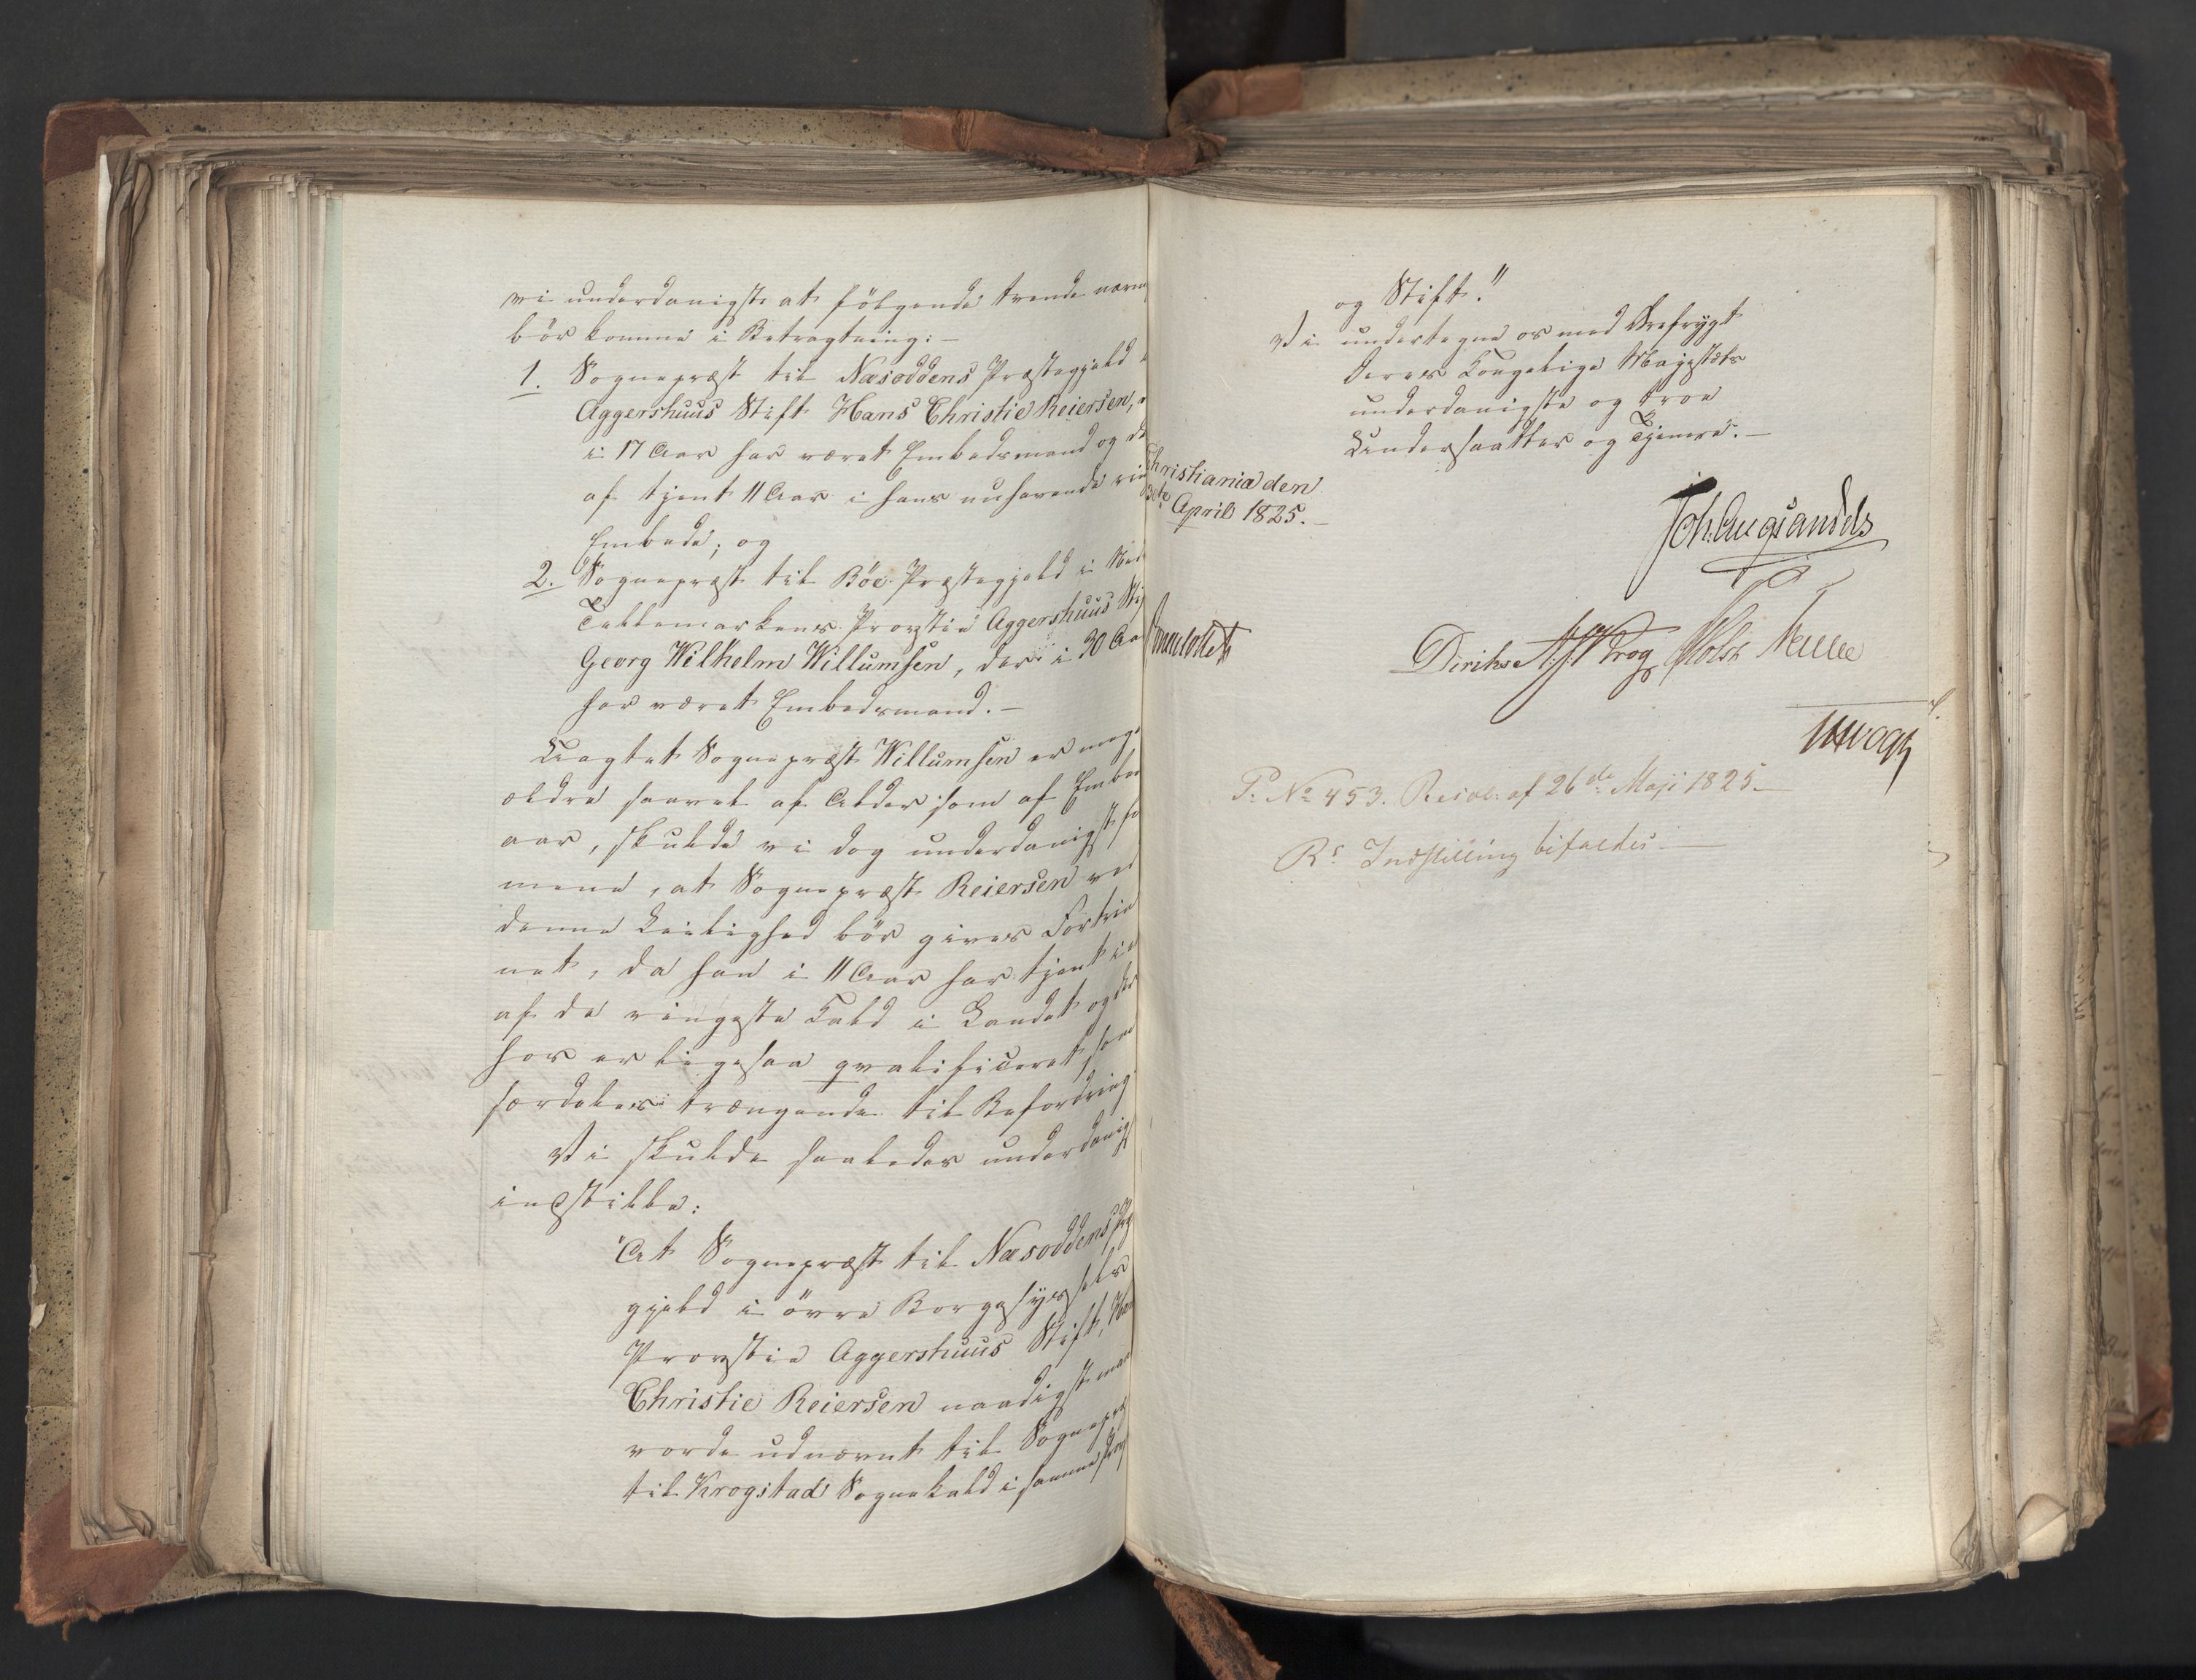 vi underdanigst at følgende tvende nævn
bör komme i Betragtning: -
1. Sognepræst til Næsoddens Præstegjeld
Aggershuus Stift Hans Christie Reiersen,
i 17 Aar har været Embedsmand og de
af tjent 11 Aar i hans nuhavende rin
Embede; og
2. Sognepræst til Böe Præstegjeld i Ned
Tellemarkens Provstie Aggershuus Stif
Georg Wilhelm Willumsen, der i 30 Aar
har været Embedsmand. -
Uagtet Sognepræst Willumsen er meg
ældre saavel af Alder som af Embed
aar, skulde vi dog underdanigst for
mene, at Sognepræst Reiersen ved
denne Leilighed bör gives Fortrin
net, da han i 11 Aar har tjent i et
af de ringeste Kald i Landet og der
for er ligesaa qvalificeret som
særdeles trængende til Befordring
Vi skulde saaledes underdanigst
indstille:
"At Sognepræst til Næsoddens Præste
gjeld i övre Borgesyssels
Provstie Aggershuus Stift, Han
Christie Reiersen naadigst maa
vorde udnævnt til Sognepræ
til Krogstad Sognekald i samme Prov
og Stift."
Vi undertegne os med Ærefrygt
Deres Kongelige Majestæts
underdanigste og troe
Undersaatter og Tjenere. -
Christiania den
April 1825. -
Joh. Aug. Sandels
Sommerfeldt
Diriks Krog Holst Treschow
Vogt
P. No 453. Resol: af 26de Maji 1825. -
Rs Indstilling bifaldes -